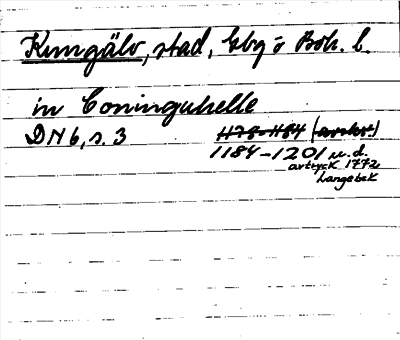 Kungälv, stad, Gbg o Boh. l.
in Coninguhelle
DN 6, s. 3 1178-1184 (avskr)
1184-1201 u.d.
avtryck 1772
Langebek